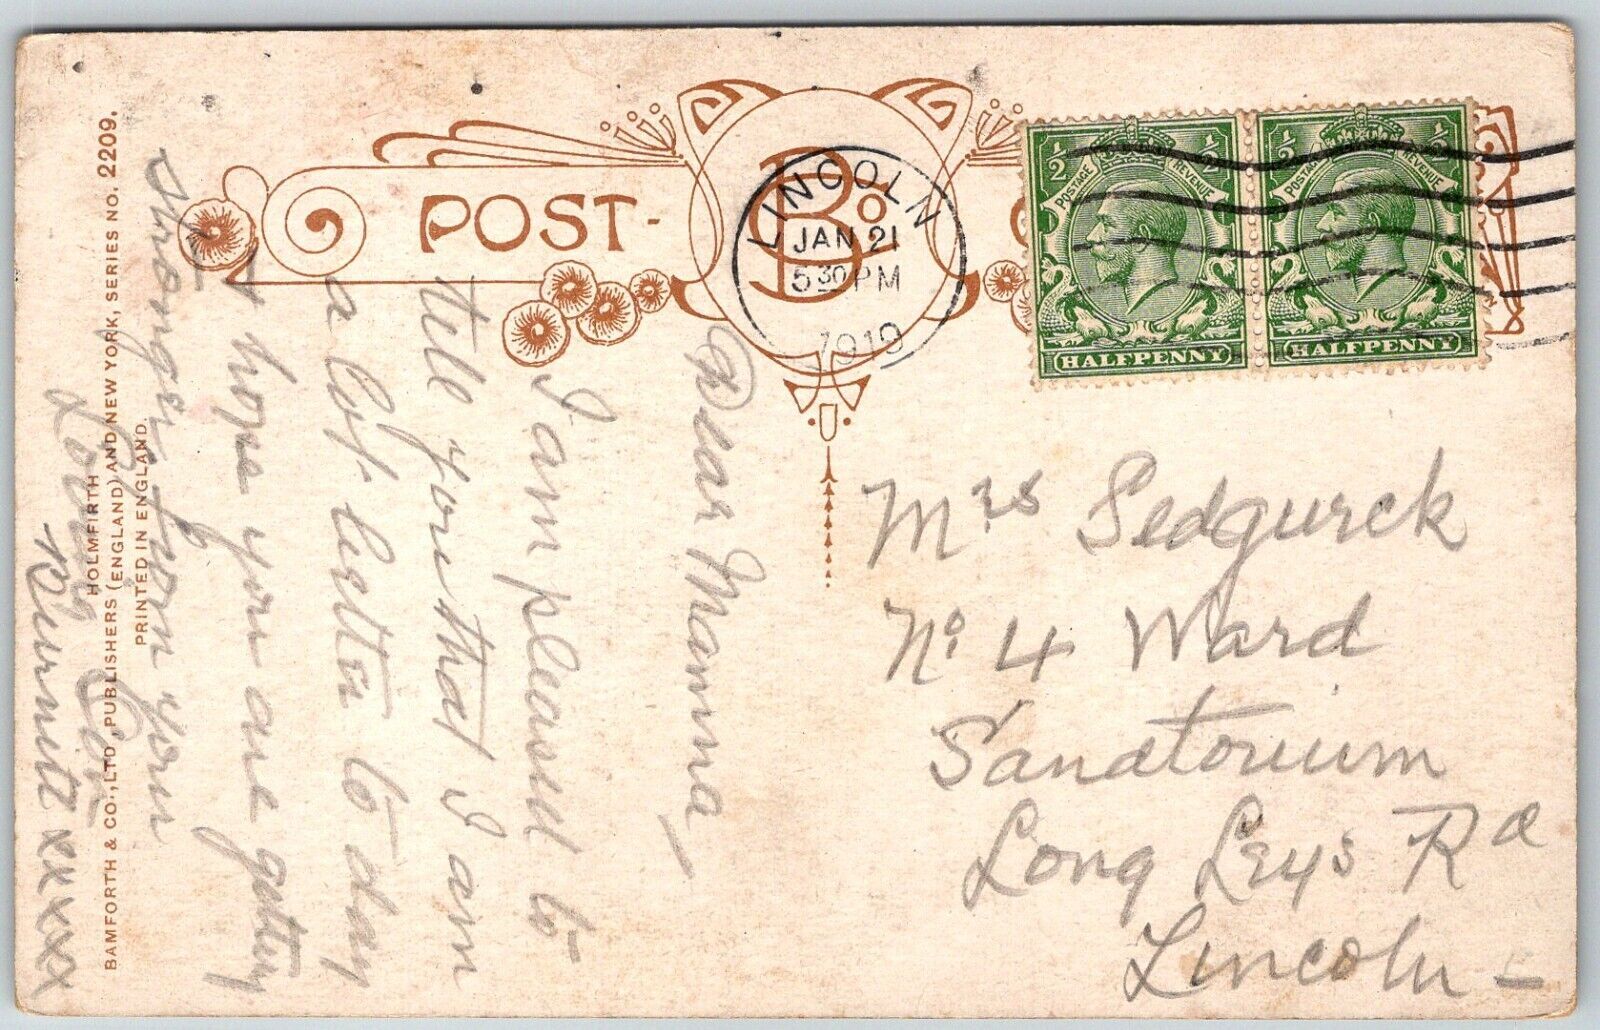 POST-
LINCOLN
JAN 21
5 30 PM
1919
B & Co
½ ½
POSTAGE REVENUE
HALFPENNY
½ ½
POSTAGE REVENUE
HALFPENNY
Dear Mamma,
I am pleased to
tell you that I am
a lot better to day
& hope you are getting
stronger from your
Loving Boy
xxxxx
Mrs Sedgwick
No 4 Ward
Sanatorium
Long Leys Rd
Lincoln
HOLMFIRTH
BAMFORTH & CO., LTD, PUBLISHERS (ENGLAND) AND NEW YORK, SERIES NO. 2209.
PRINTED IN ENGLAND.